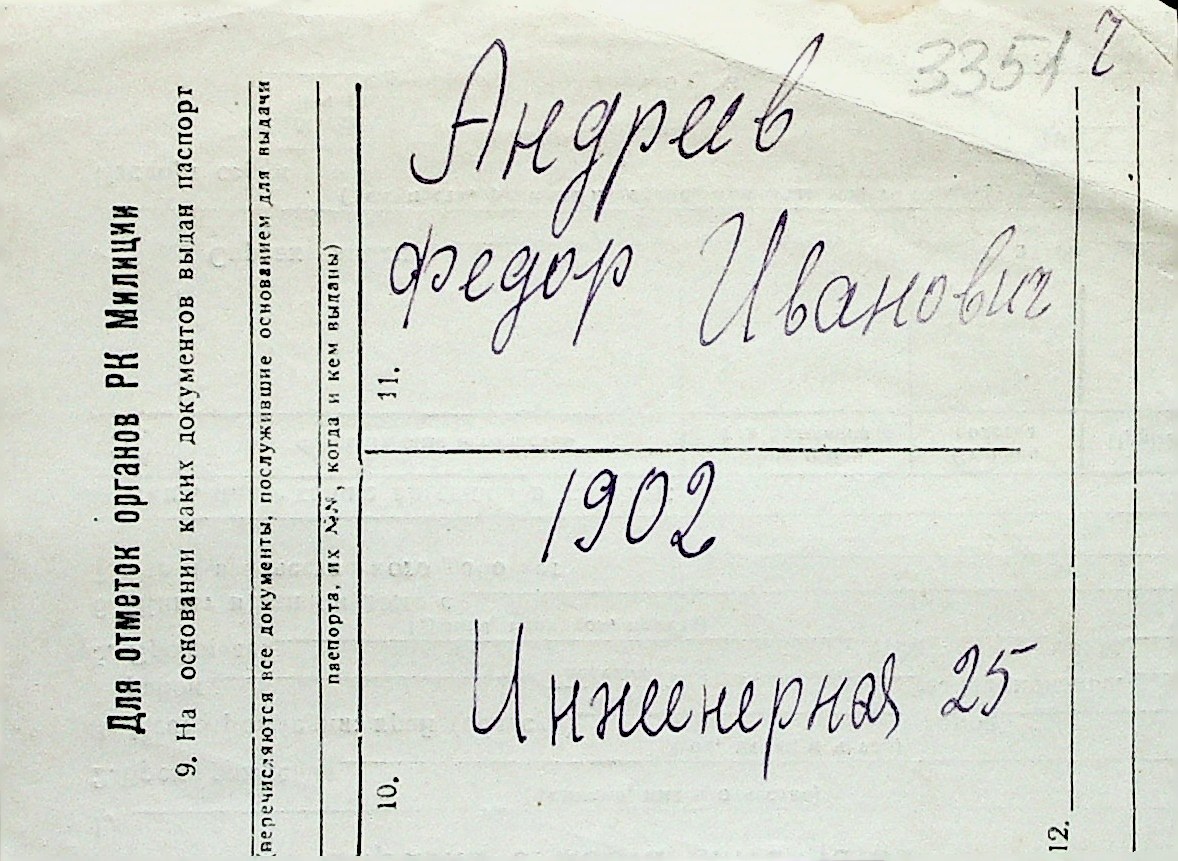 Для отметок органов РК Милиции
9. На основании каких документов выдан паспорт
(перечисляются все документы, послужившие основанием для выдачи
паспорта, их №№, когда и кем выданы)
10.
11.
12.
3351
Андреев
Федор Иванович
1902
Инженерная 25